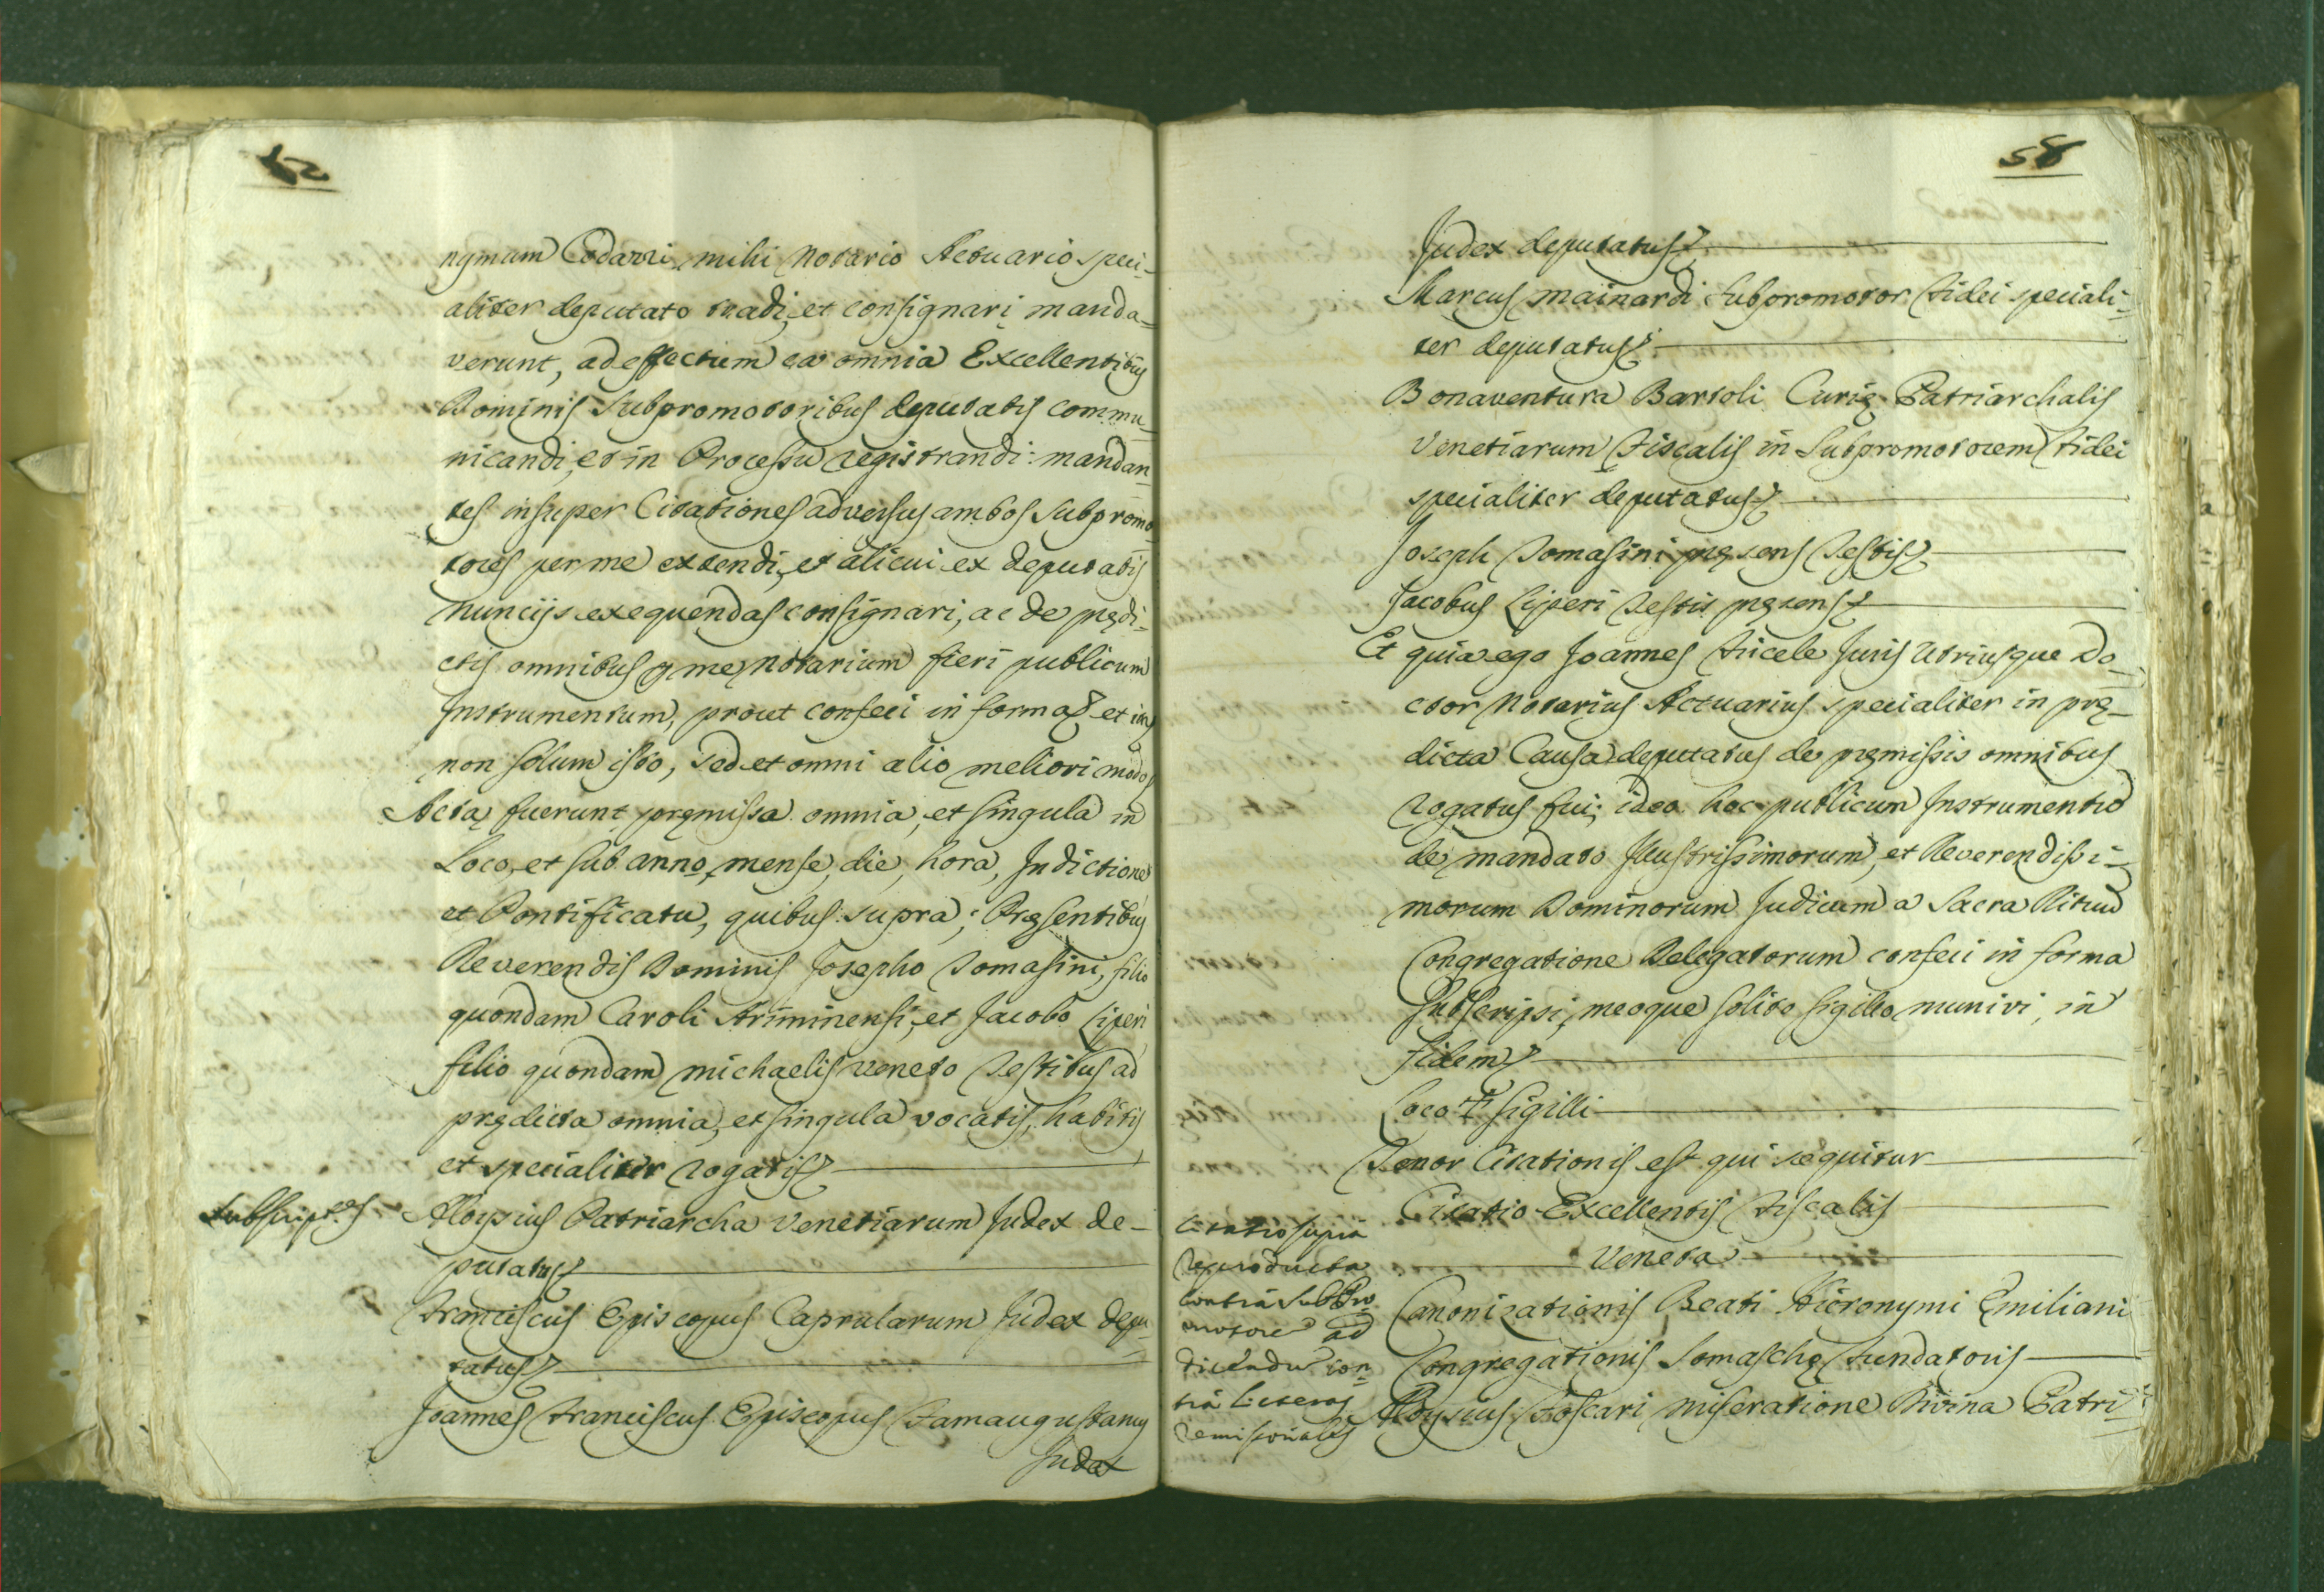 nymum Codazzi, mihi Notario Actuario speci-
aliter deputato tradi, et consignari manda-
verunt, ad effectum ea omnia Excellentibus
Dominis Subpromotoribus deputatis commu-
nicandi, et in Processu registrandi: mandan-
tes insuper Citationes adversus ambos Subpromo-
tores per me extendi, et alicui ex deputatis
Nuncijs exequendas consignari, ac de prędi-
ctis omnibus per me Notarium fieri publicum
Instrumentum, prout confeci in forma et
non solum isto, sed et omni alio meliori modo
Acta fuerunt pręmissa omnia, et singula in
Loco, et sub anno, mense, die, hora, Indictione
et Pontificatu, quibus supra; Pręsentibus
Reverendis Dominis Josepho Tomasini, filio
quondam Caroli Ariminensi, et Jacobo Liperi
filio quondam Michaelis Veneto Testibus ad
prędicta omnia, et singula vocatis, habitis
et specialiter rogatis
Subscript.es
Aloysius Patriarcha Venetiarum Judex de-
putatus
Franciscus Episcopus Caprularum Judex depu-
tatus
Joannes Franciscus Episcopus Famaugustanus
Judex
58
Judex deputatus
Marcus Mainardi Subpromotor Fidei speciali-
ter deputatus
Bonaventura Bartoli Curię Patriarchalis
Venetiarum Fiscalis in Subpromotorem Fidei
specialiter deputatus
Joseph Tomasini pręsens Testis
Jacobus Liperi Testis pręsens
Et quia ego Joannes Juris Utriusque Do-
ctor Notarius Actuarius specialiter in prę-
dicta Causa deputatus de pręmissis omnibus
rogatus fui; ideo hoc publicum Instrumentum
de mandato Illustrissimorum, et Reverendissi-
morum Dominorum Judicum a Sacra Rituum
Congregatione Delegatorum confeci in forma
subscripsi, meoque solito sigillo munivi, in
fidem
Loco + Sigilli
Tenor Citationis est qui sequitur
Citatio Excellentis Fiscalis
Veneta
Citatio supra
reproducta
contra Subpro
motores ad
dicendu con-
tra Literas
Remissoriales
Canonizationis Beati Hieronymi Emiliani
Congregationis Somaschę Fundatoris
Aloysius Foscari, Miseratione Divina Patri-